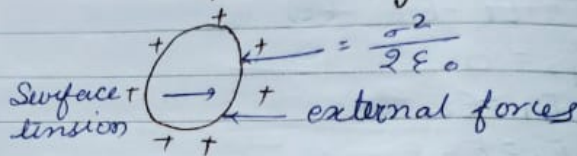 +
+ + = σ²/2ε₀
Surface + +
tension external forces
+ +